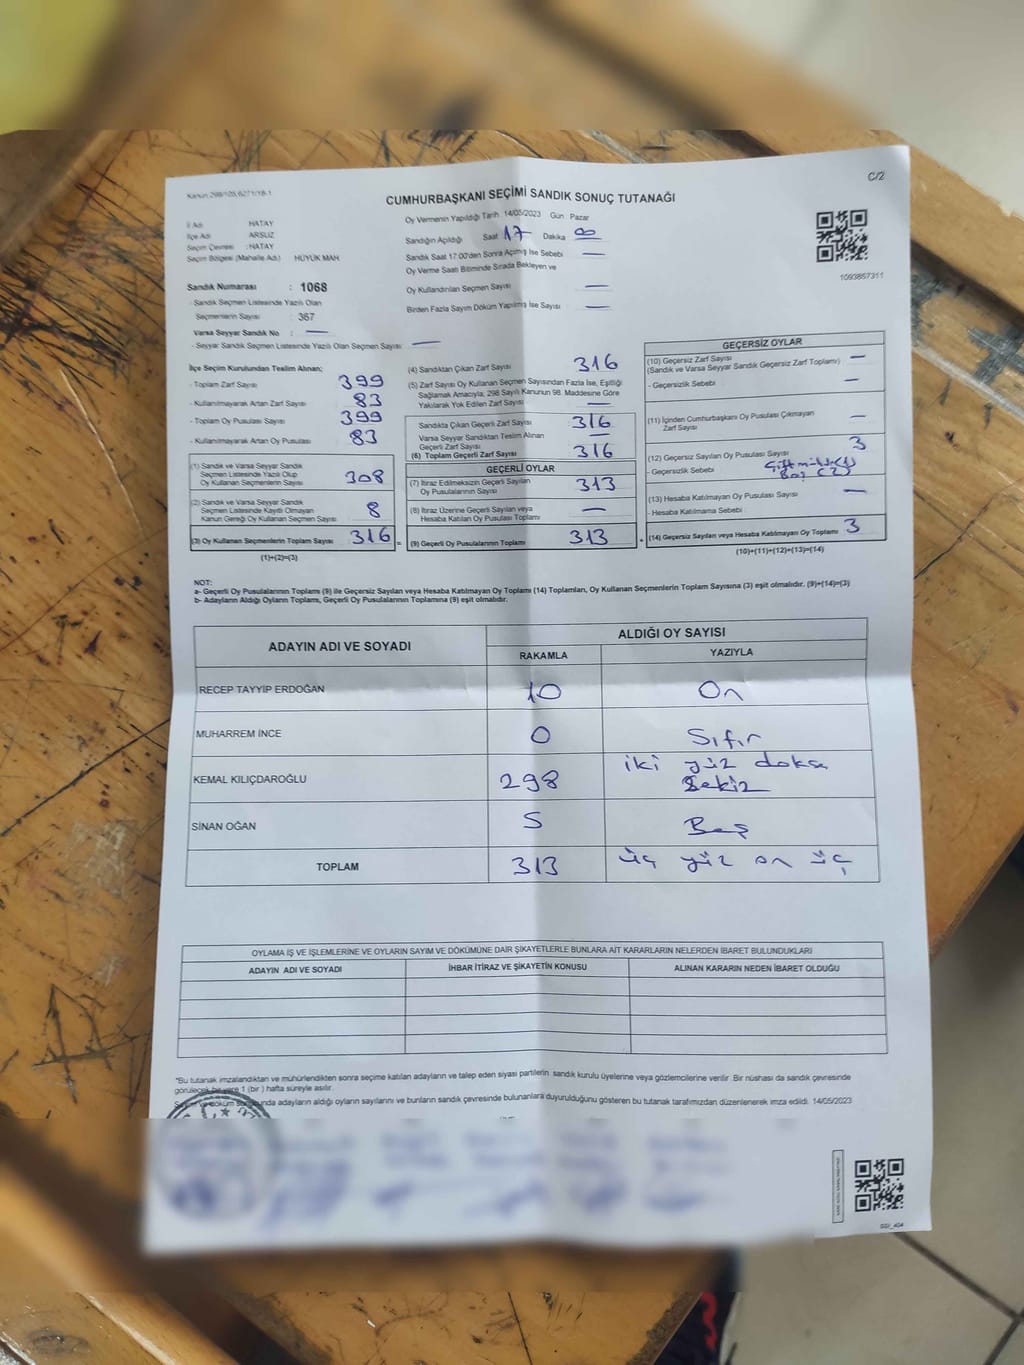 Kanun:298/105,6271/18-1
C/2
CUMHURBAŞKANI SEÇİMİ SANDIK SONUÇ TUTANAĞI
İl Adı HATAY
İlçe Adı ARSUZ
Seçim Çevresi :HATAY
Seçim Bölgesi (Mahalle Adı) HÜYÜK MAH
Oy Vermenin Yapıldığı Tarih 14/05/2023 Gün Pazar
Sandığın Açıldığı Saat 17 Dakika 00
Sandık Saat 17:00'den Sonra Açılmış İse Sebebi —
Oy Verme Saati Bitiminde Sırada Bekleyen ve
Oy Kullandırılan Seçmen Sayısı —
Birden Fazla Sayım Döküm Yapılmış İse Sayısı —
1093857311
Sandık Numarası : 1068
- Sandık Seçmen Listesinde Yazılı Olan
Seçmenlerin Sayısı : 367
Varsa Seyyar Sandık No : —
- Seyyar Sandık Seçmen Listesinde Yazılı Olan Seçmen Sayısı —
İlçe Seçim Kurulundan Teslim Alınan;
- Toplam Zarf Sayısı 399
- Kullanılmayarak Artan Zarf Sayısı 83
- Toplam Oy Pusulası Sayısı 399
- Kullanılmayarak Artan Oy Pusulası 83
(1) Sandık ve Varsa Seyyar Sandık
Seçmen Listesinde Yazılı Olup
Oy Kullanan Seçmenlerin Sayısı 308
(2) Sandık ve Varsa Seyyar Sandık
Seçmen Listesinde Kaydı Olmayan
Kanun Gereği Oy Kullanan Seçmen Sayısı 8
(3) Oy Kullanan Seçmenlerin Toplam Sayısı 316 =
(1)+(2)=(3)
(4) Sandıktan Çıkan Zarf Sayısı 316
(5) Zarf Sayısı Oy Kullanan Seçmen Sayısından Fazla İse, Eşitliği
Sağlamak Amacıyla; 298 Sayılı Kanunun 98. Maddesine Göre
Yakılarak Yok Edilen Zarf Sayısı —
Sandıkta Çıkan Geçerli Zarf Sayısı 316
Varsa Seyyar Sandıktan Teslim Alınan
Geçerli Zarf Sayısı —
(6) Toplam Geçerli Zarf Sayısı 316
GEÇERLİ OYLAR
(7) İtiraz Edilmeksizin Geçerli Sayılan
Oy Pusulalarının Sayısı 313
(8) İtiraz Üzerine Geçerli Sayılan veya
Hesaba Katılan Oy Pusulası Toplamı —
(9) Geçerli Oy Pusulalarının Toplamı 313 +
GEÇERSİZ OYLAR
(10) Geçersiz Zarf Sayısı —
(Sandık ve Varsa Seyyar Sandık Geçersiz Zarf Toplamı)
- Geçersizlik Sebebi —
(11) İçinden Cumhurbaşkanı Oy Pusulası Çıkmayan
Zarf Sayısı —
(12) Geçersiz Sayılan Oy Pusulası Sayısı 3
- Geçersizlik Sebebi Çift mühür(1)
Boş (2)
(13) Hesaba Katılmayan Oy Pusulası Sayısı —
- Hesaba Katılmama Sebebi
(14) Geçersiz Sayılan veya Hesaba Katılmayan Oy Toplamı 3
(10)+(11)+(12)+(13)=(14)
NOT:
a- Geçerli Oy Pusulalarının Toplamı (9) ile Geçersiz Sayılan veya Hesaba Katılmayan Oy Toplamı (14) Toplamları, Oy Kullanan Seçmenlerin Toplam Sayısına (3) eşit olmalıdır. (9)+(14)=(3)
b- Adayların Aldığı Oyların Toplamı, Geçerli Oy Pusulalarının Toplamına (9) eşit olmalıdır.
ADAYIN ADI VE SOYADI
ALDIĞI OY SAYISI
RAKAMLA YAZIYLA
RECEP TAYYİP ERDOĞAN 10 On
MUHARREM İNCE 0 Sıfır
KEMAL KILIÇDAROĞLU 298 iki yüz doksa
Sekiz
SİNAN OĞAN 5 Beş
TOPLAM 313 üç yüz on üç
OYLAMA İŞ VE İŞLEMLERİNE VE OYLARIN SAYIM VE DÖKÜMÜNE DAİR ŞİKAYETLERLE BUNLARA AİT KARARLARIN NELERDEN İBARET BULUNDUKLARI
ADAYIN ADI VE SOYADI İHBAR İTİRAZ VE ŞİKAYETİN KONUSU ALINAN KARARIN NEDEN İBARET OLDUĞU
*Bu tutanak imzalandıktan ve mühürlendikten sonra seçime katılan adayların ve talep eden siyasi partilerin sandık kurulu üyelerine veya gözlemcilerine verilir. Bir nüshası da sandık çevresinde
görülecek bir yere 1 (bir ) hafta süreyle asılır.
adayların aldığı oyların sayılarını ve bunların sandık çevresinde bulunanlara duyurulduğunu gösteren bu tutanak tarafımızdan düzenlenerek imza edildi. 14/05/2023